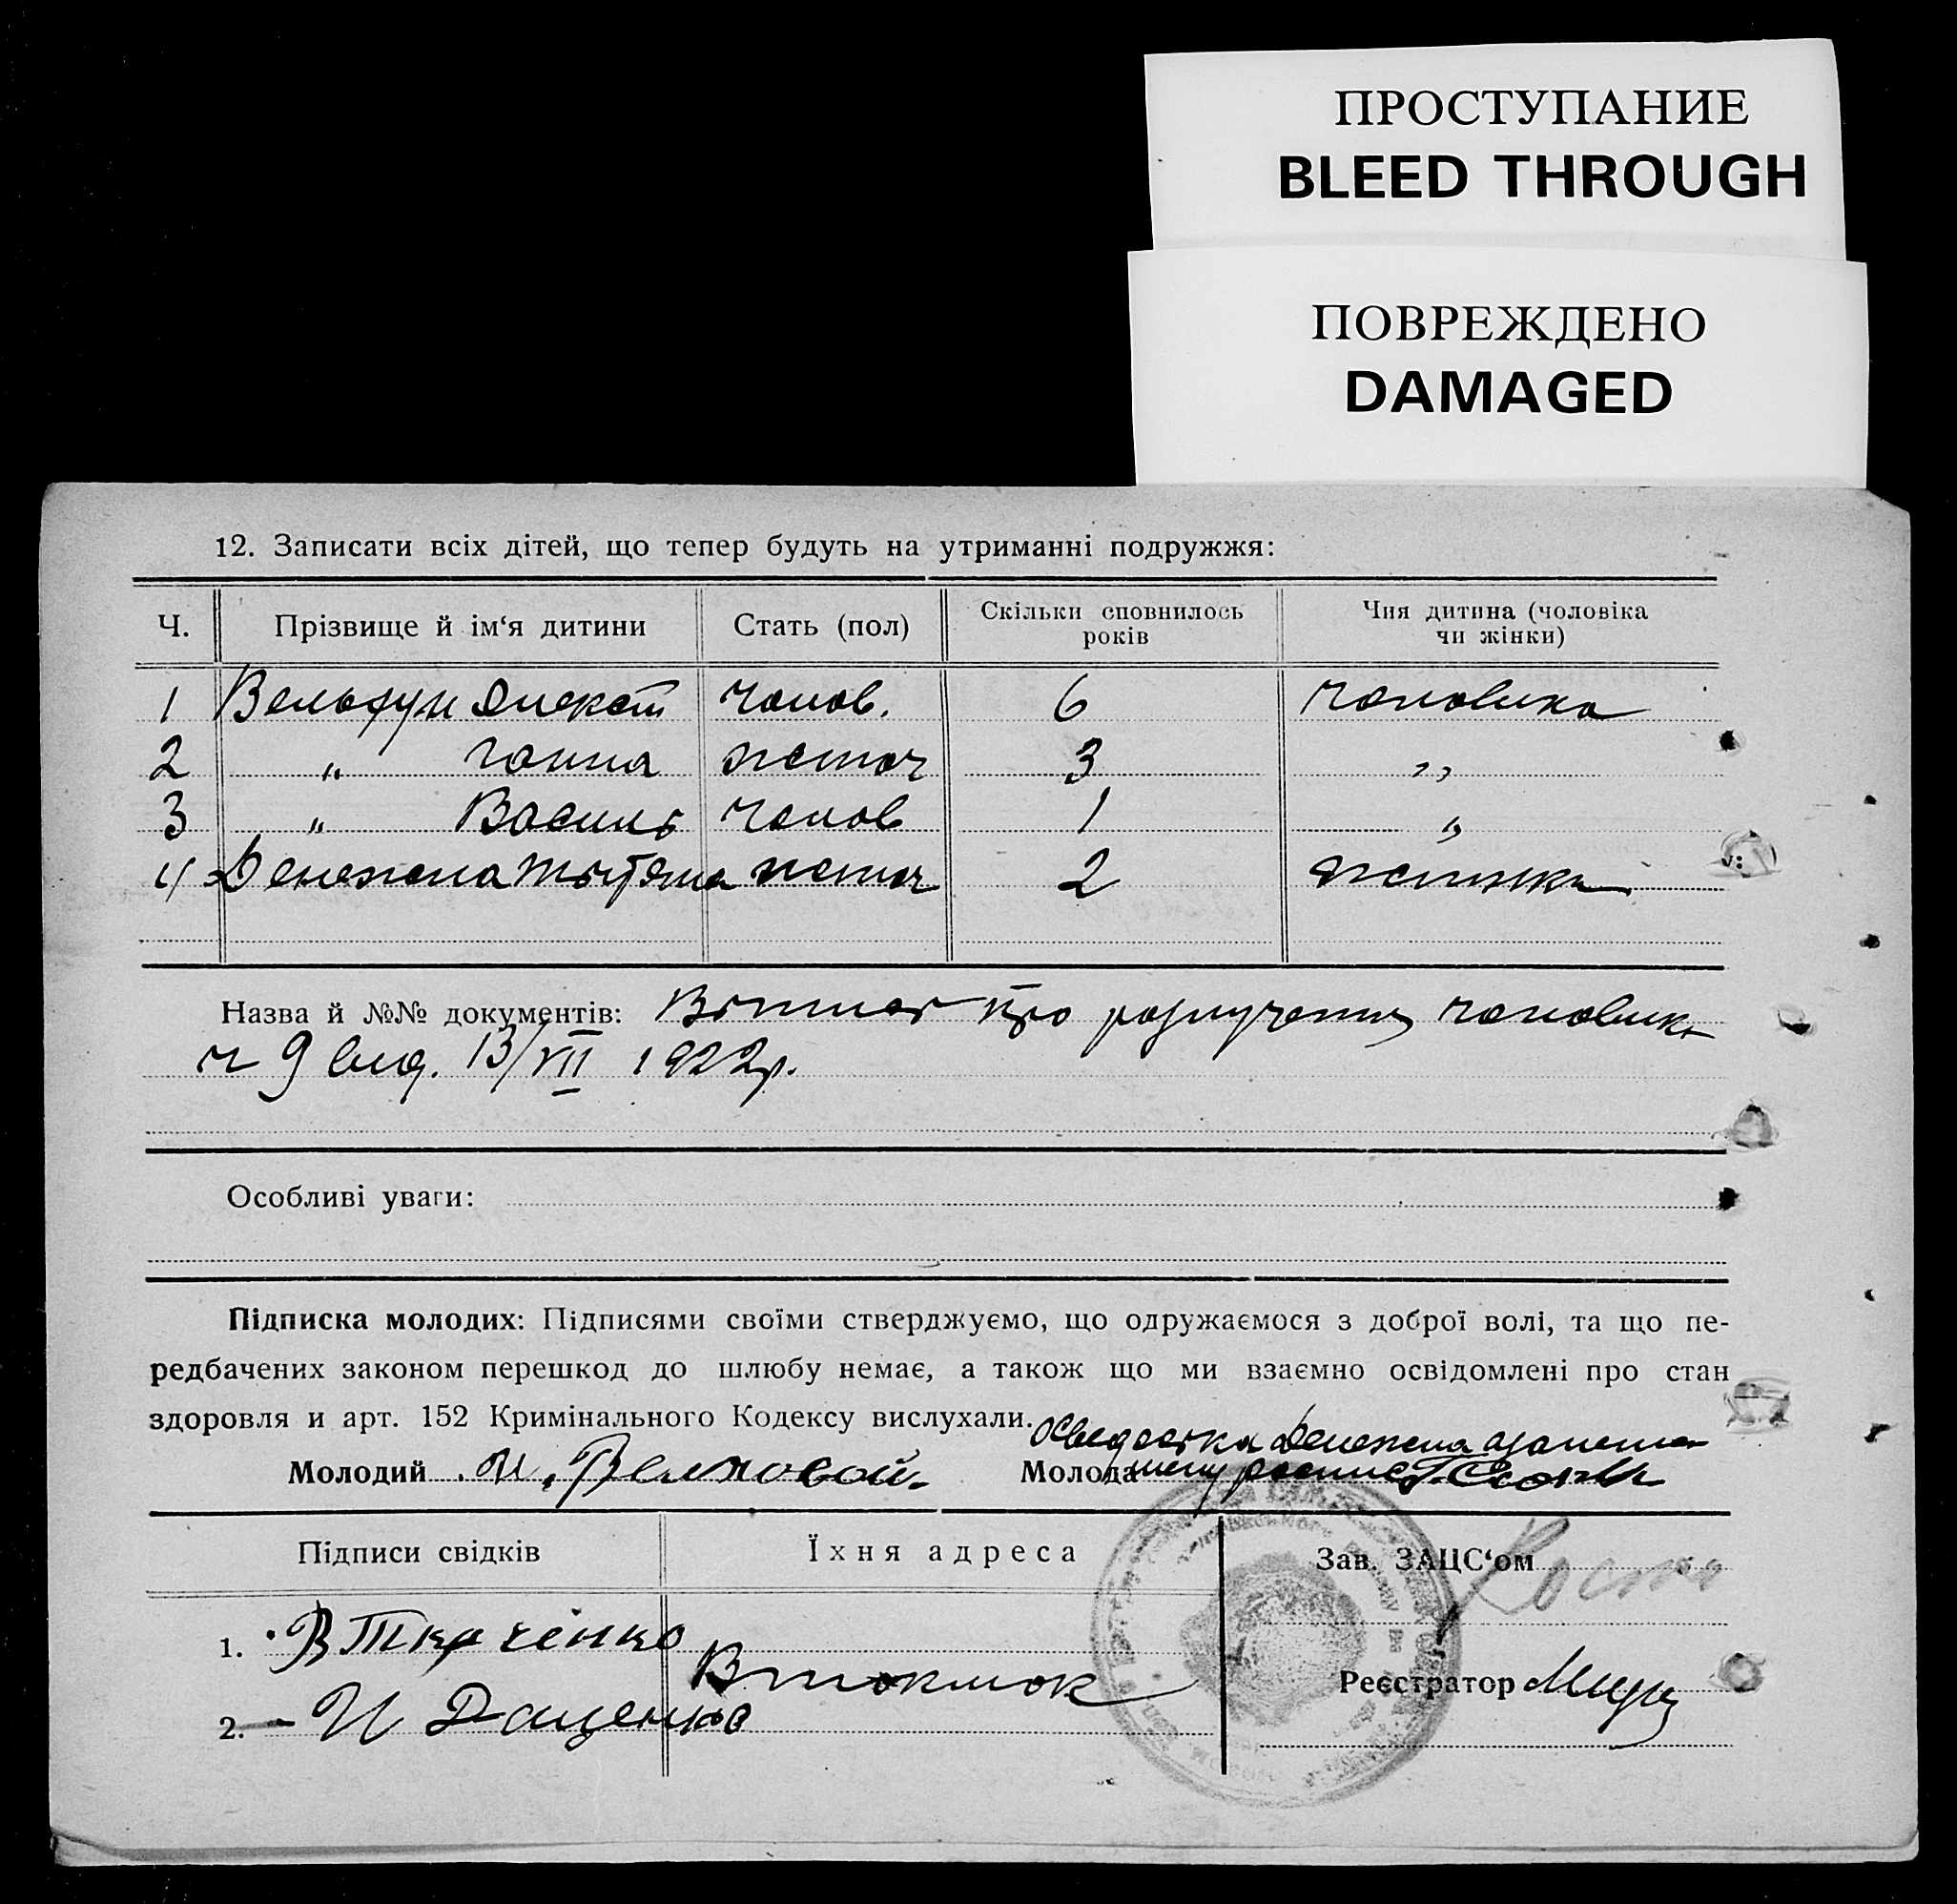 ПРОСТУПАНИЕ
BLEED THROUGH
ПОВРЕЖДЕНО
DAMAGED
12. Записати всіх дітей, що тепер будуть на утриманні подружжя:
Ч. Прізвище й ім‘я дитини Стать (пол) Скільки сповнилось років Чия дитина (чоловіка чи жінки)
1 чолов. 6 чоловика
2 " Ганна жіноч 3 "
3 " Василь чолов 1 "
4 жіноч 2 жінки
Назва й №№ документів: про розлучення чоловика
ч 9 вид. 13/VII 1922р.
Особливі уваги:
Підписка молодих: Підписями своїми стверджуємо, що одружаємося з доброї волі, та що пе-
редбачених законом перешкод до шлюбу немає, а також що ми взаємно освідомлені про стан
здоровля и арт. 152 Кримінального Кодексу вислухали.
Молодий Молода
Підписи свідків Їхня адреса Зав. ЗАЦС‘ом
1. В Ткаченко
В токмок Реєстратор
2. И Даценко